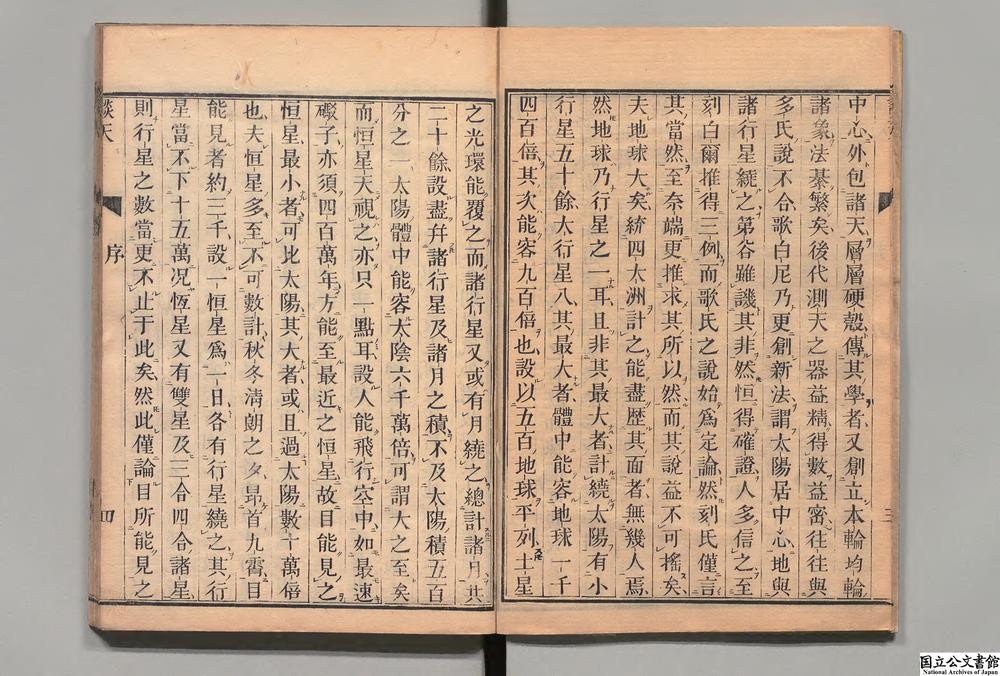 中心外包諸天層層硬殼傳其學者又創立本輪均輪
諸象法綦繁矣後代測天之器益精得數益密往往與
多氏說不合歌白尼乃更創新法謂太陽居中心地與
諸行星繞之第谷雖譏其非然恒得確證人多信之至
刻白爾推得三例而歌氏之說始爲定論然刻氏僅言
其當然至奈端更推求其所以然而其說益不可搖矣
夫地球大矣統四大洲計之能盡歷其面者無幾人焉
然地球乃行星之一耳且非其最大者計繞太陽有小
行星五十餘大行星八其最大者體中能容地球一千
四百倍其次能容九百倍也設以五百地球平列土星
三
之光環能覆之而諸行星又或有月繞之總計諸月共
二十餘設盡幷諸行星及諸月之積不及太陽積五百
分之一太陽體中能容太陰六千萬倍可謂大之至矣
而恒星天視之亦只一點耳設人能飛行空中如最速
礮子亦須四百萬年方能至最近之恒星故目能見之
恒星最小者可比太陽其大者或且過太陽數十萬倍
也夫恒星多至不可數計秋冬清朗之夕昂首九霄目
能見者約三千設一恒星爲一日各有行星繞之其行
星當不下十五萬况恆星又有雙星及三合四合諸星
則行星之數當更不止于此矣然此僅論目所能見之
談天
序
四
国立公文書館
National Archives of Japan